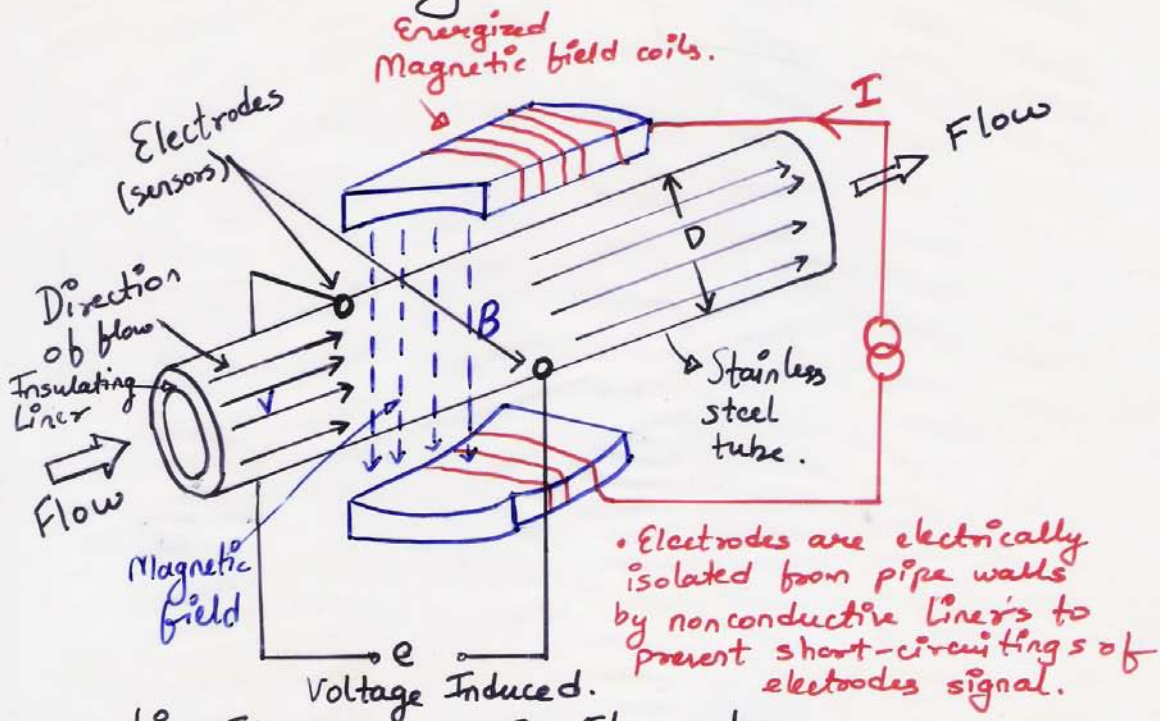 Energized
Magnetic field coils.
I
Flow
Electrodes
(sensors)
D
Direction
of flow
B
Insulating
Liner
V
Stainless
steel
tube.
Flow
Magnetic
field
• Electrodes are electrically
isolated from pipe walls
by nonconductive Liner's to
prevent short-circuitings of
electrodes signal.
e
Voltage Induced.